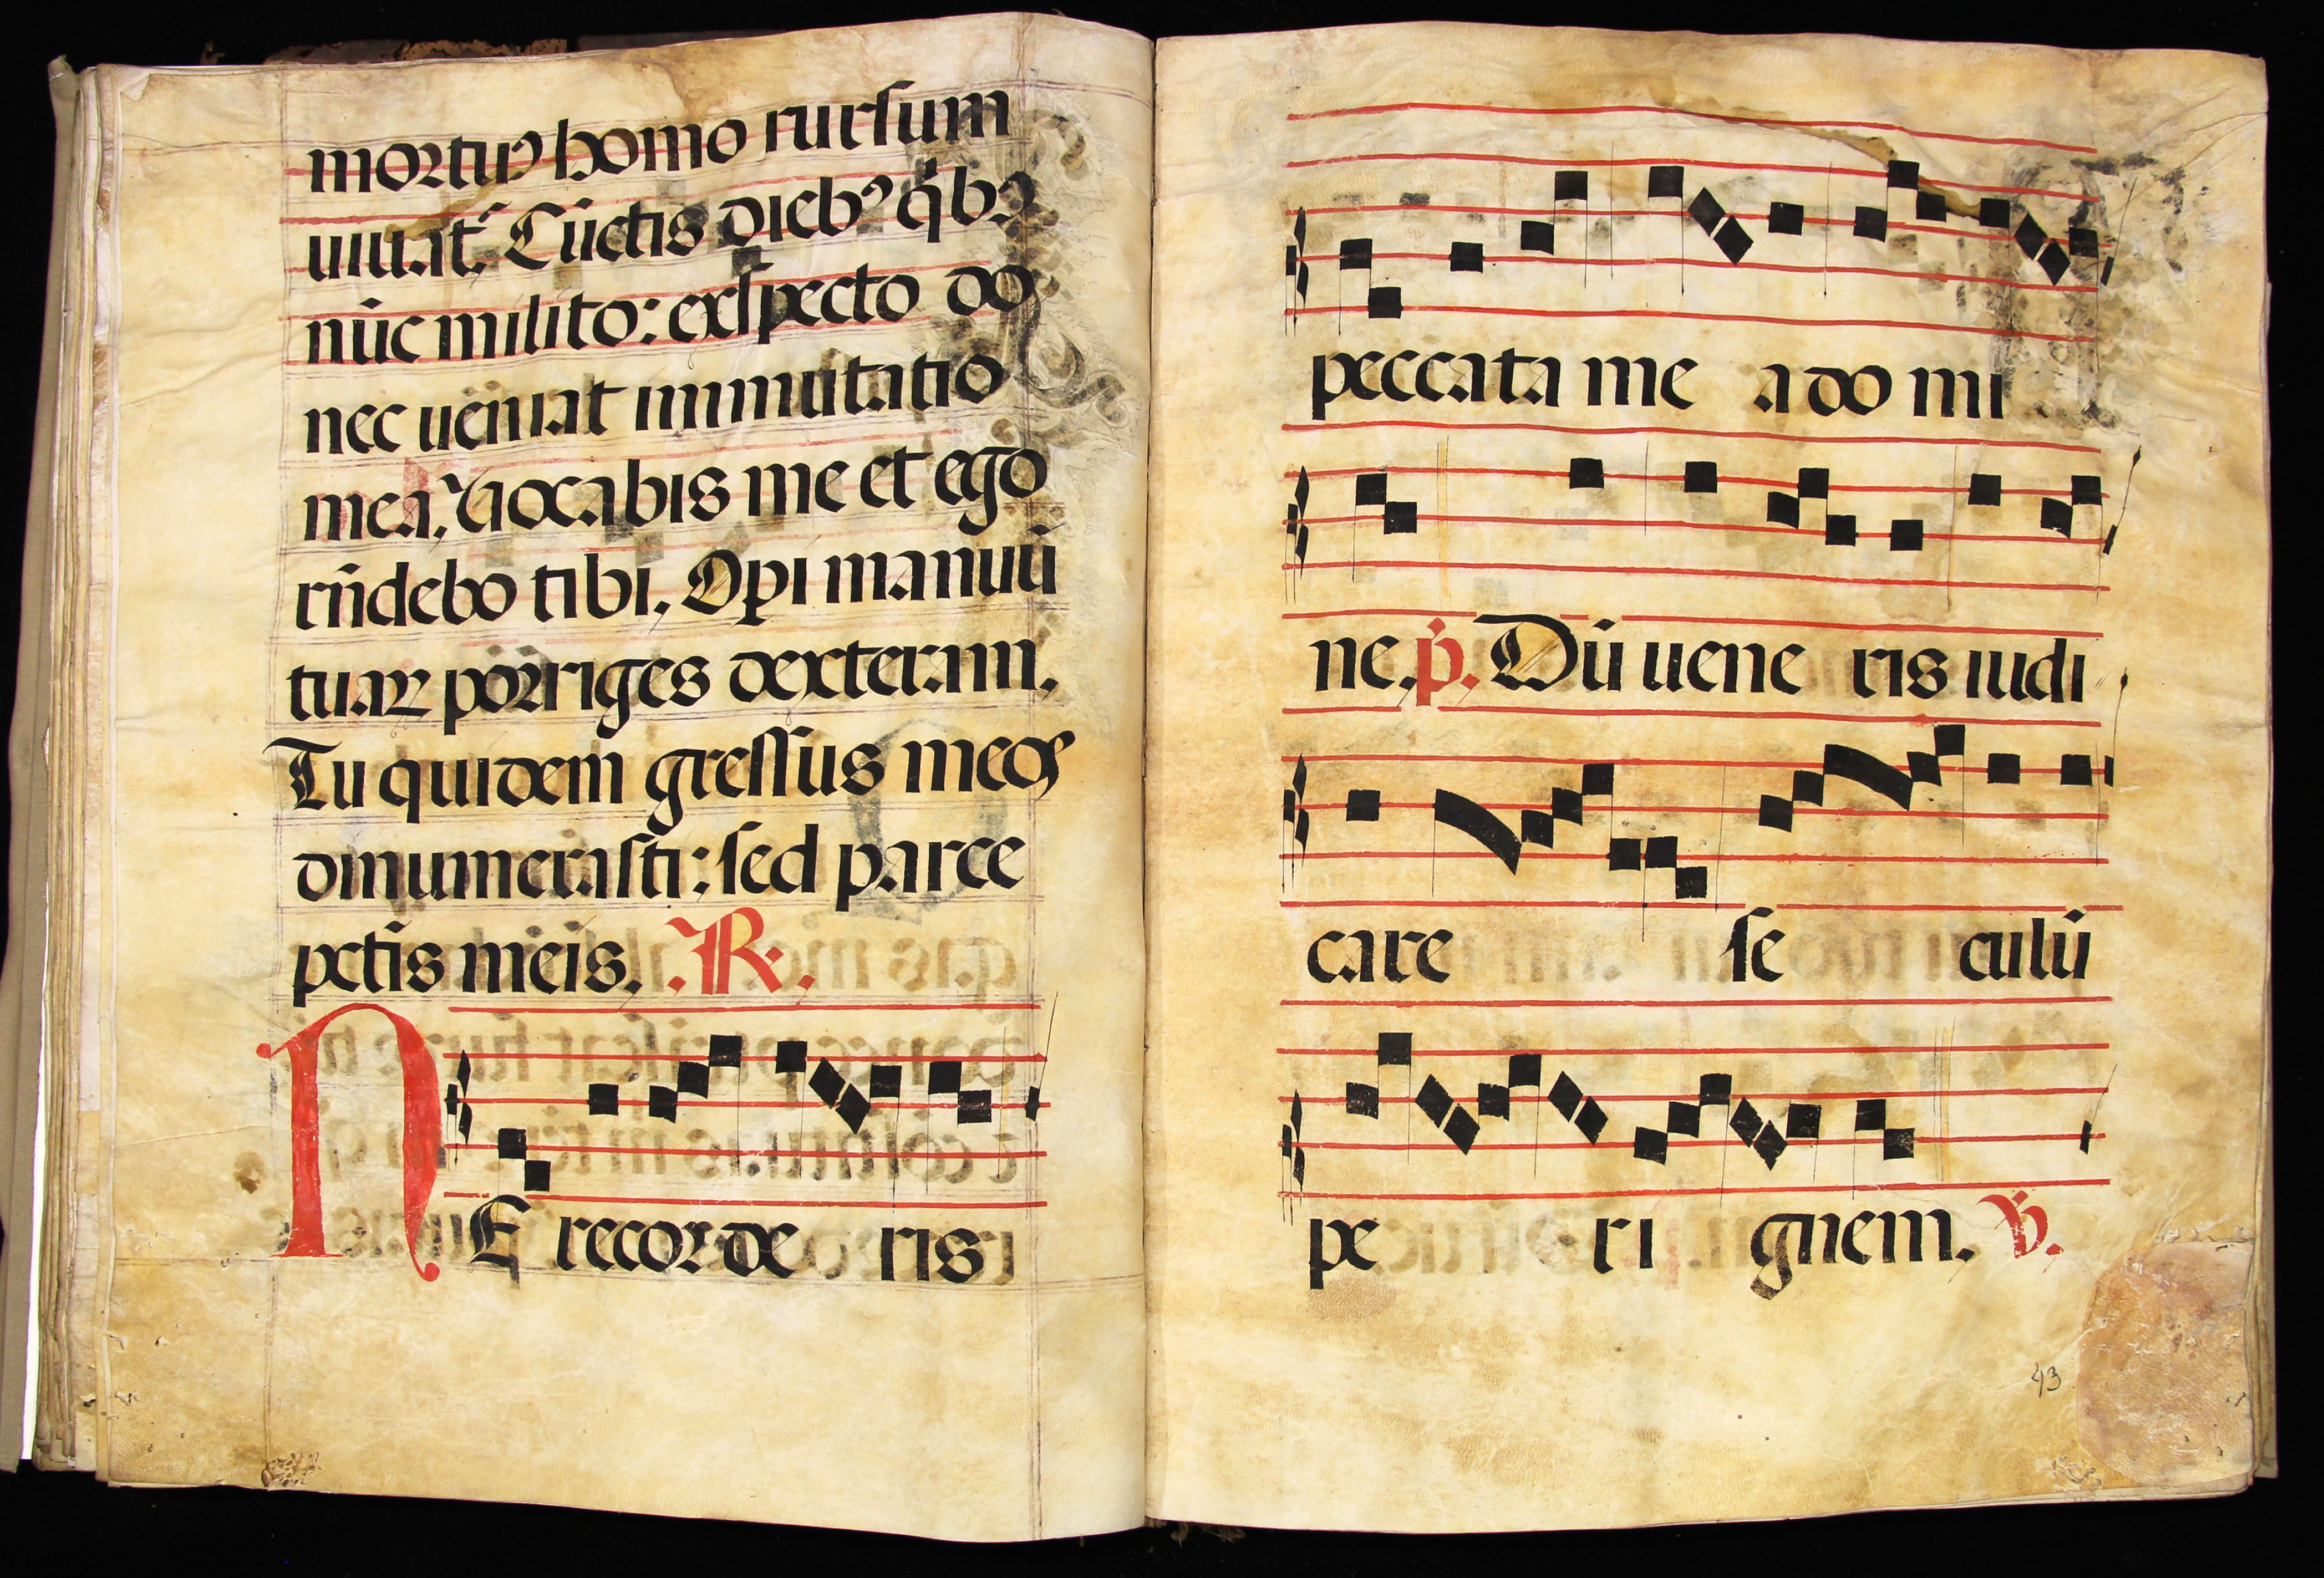 mortuꝰ homo rursum
uiuat? Cūctis diebꝰ q̄bꝰ
nūc milito: exspecto do
nec ueniat immutatio
mea. Vocabis me et ego
rñdebo tibi. Opi manuū
tuaꝝ porriges dexteram.
Tu quidem gressus meos
dinumerasti: sed parce
pctis meis. ℟.
NE recorde ris
peccata me a do mi
ne. p̄. Dū uene ris iudi
care se culū
pe ri gnem. ℣.
43